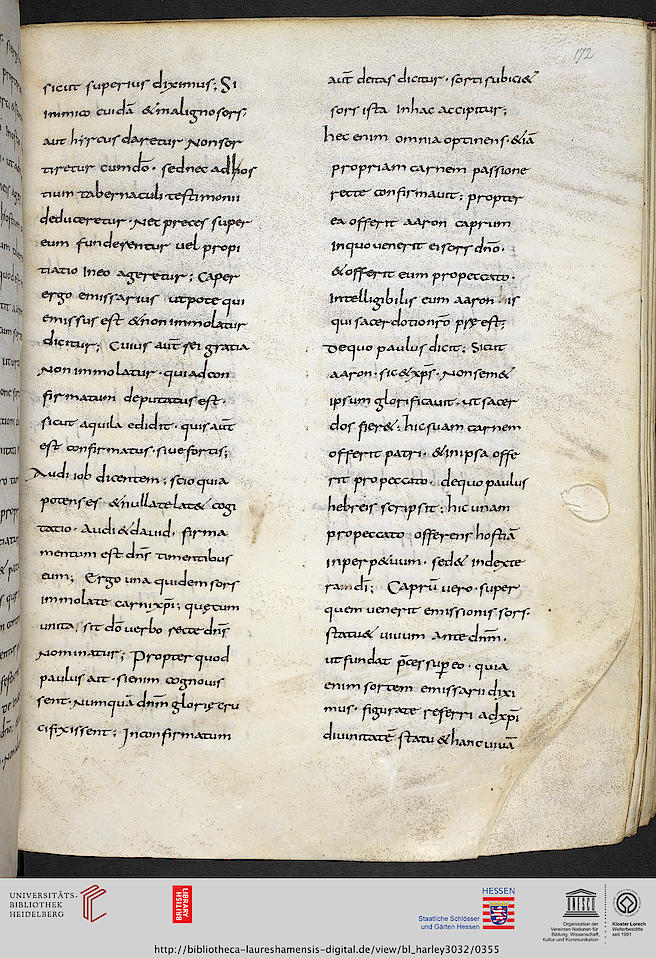 172
sicut superius diximus; Si
inimico cuidā & maligno sors
aut hyrcus daretur Non sor
tiretur cum dō· sed nec ad hos
tium tabernaculi testimonii
deduceretur· Nec preces super
eum funderentur vel propi
tiatio in eo ageretur; Caper
ergo emissarius utpote qui
emissus est & non immolatur
dicitur; Cuius aūt rei gratia
Non immolatur· quia d con
firmatum deputatus est·
sicut aquila edidit· quis aūt
est confirmatus· sive fortis;
Audi iob dicentem; scio quia
potens es & nulla te lat& cogi
tatio· Audi & david· firma
mentum est dn̄s timentibus
eum; Ergo una quidem sors
immolate carni xp̄i; quę cum
unita sit dō verbo recte dn̄s
Nominatur; Propter quod
paulus ait· si enim cognovis
sent· Numquā dn̄m glorię cru
cifixissent; In confirmatum
aūt deitas dicitur· sorti subici&
sors ista in hac accipitur;
hec enim omnia optinens· & iā
propriam carnem passione
recte confirmavit; propter
ea offerit aaron caprum
in quo venerit ei sors dn̄o·
& offerit eum pro peccato·
Intelligibilis eum aaron is
qui sacerdotio nr̄o pręest;
De quo paulus dicit; Sicut
aaron· sic & xp̄s· Non sem&
ipsum glorificavit· ut sacer
dos fier&; hic suam carnem
offerit patri· & in ipsa offe
rit pro peccato· de quo paulus
hebreis scripsit; hic unam
pro peccato offerens hostiā
in perp&uum· sed& in dexte
ra dī; Caprū vero· super
quem venerit emissionis sors·
statu& vivum Ante dn̄m·
ut fundat p̄ces sup eo· quia
enim sortem emissarii dixi
mus· figurate referri ad xp̄i
divinitatē statu& hanc vivā
UNIVERSITÄTS-
BIBLIOTHEK
HEIDELBERG
BRITISH
LIBRARY
HESSEN
Staatliche Schlösser
und Gärten Hessen
UNESCO
Organisation der
Vereinten Nationen für
Bildung, Wissenschaft,
Kultur und Kommunikation
Kloster Lorsch
Welterbestätte
seit 1991
http://bibliotheca-laureshamensis-digital.de/view/bl_harley3032/0355